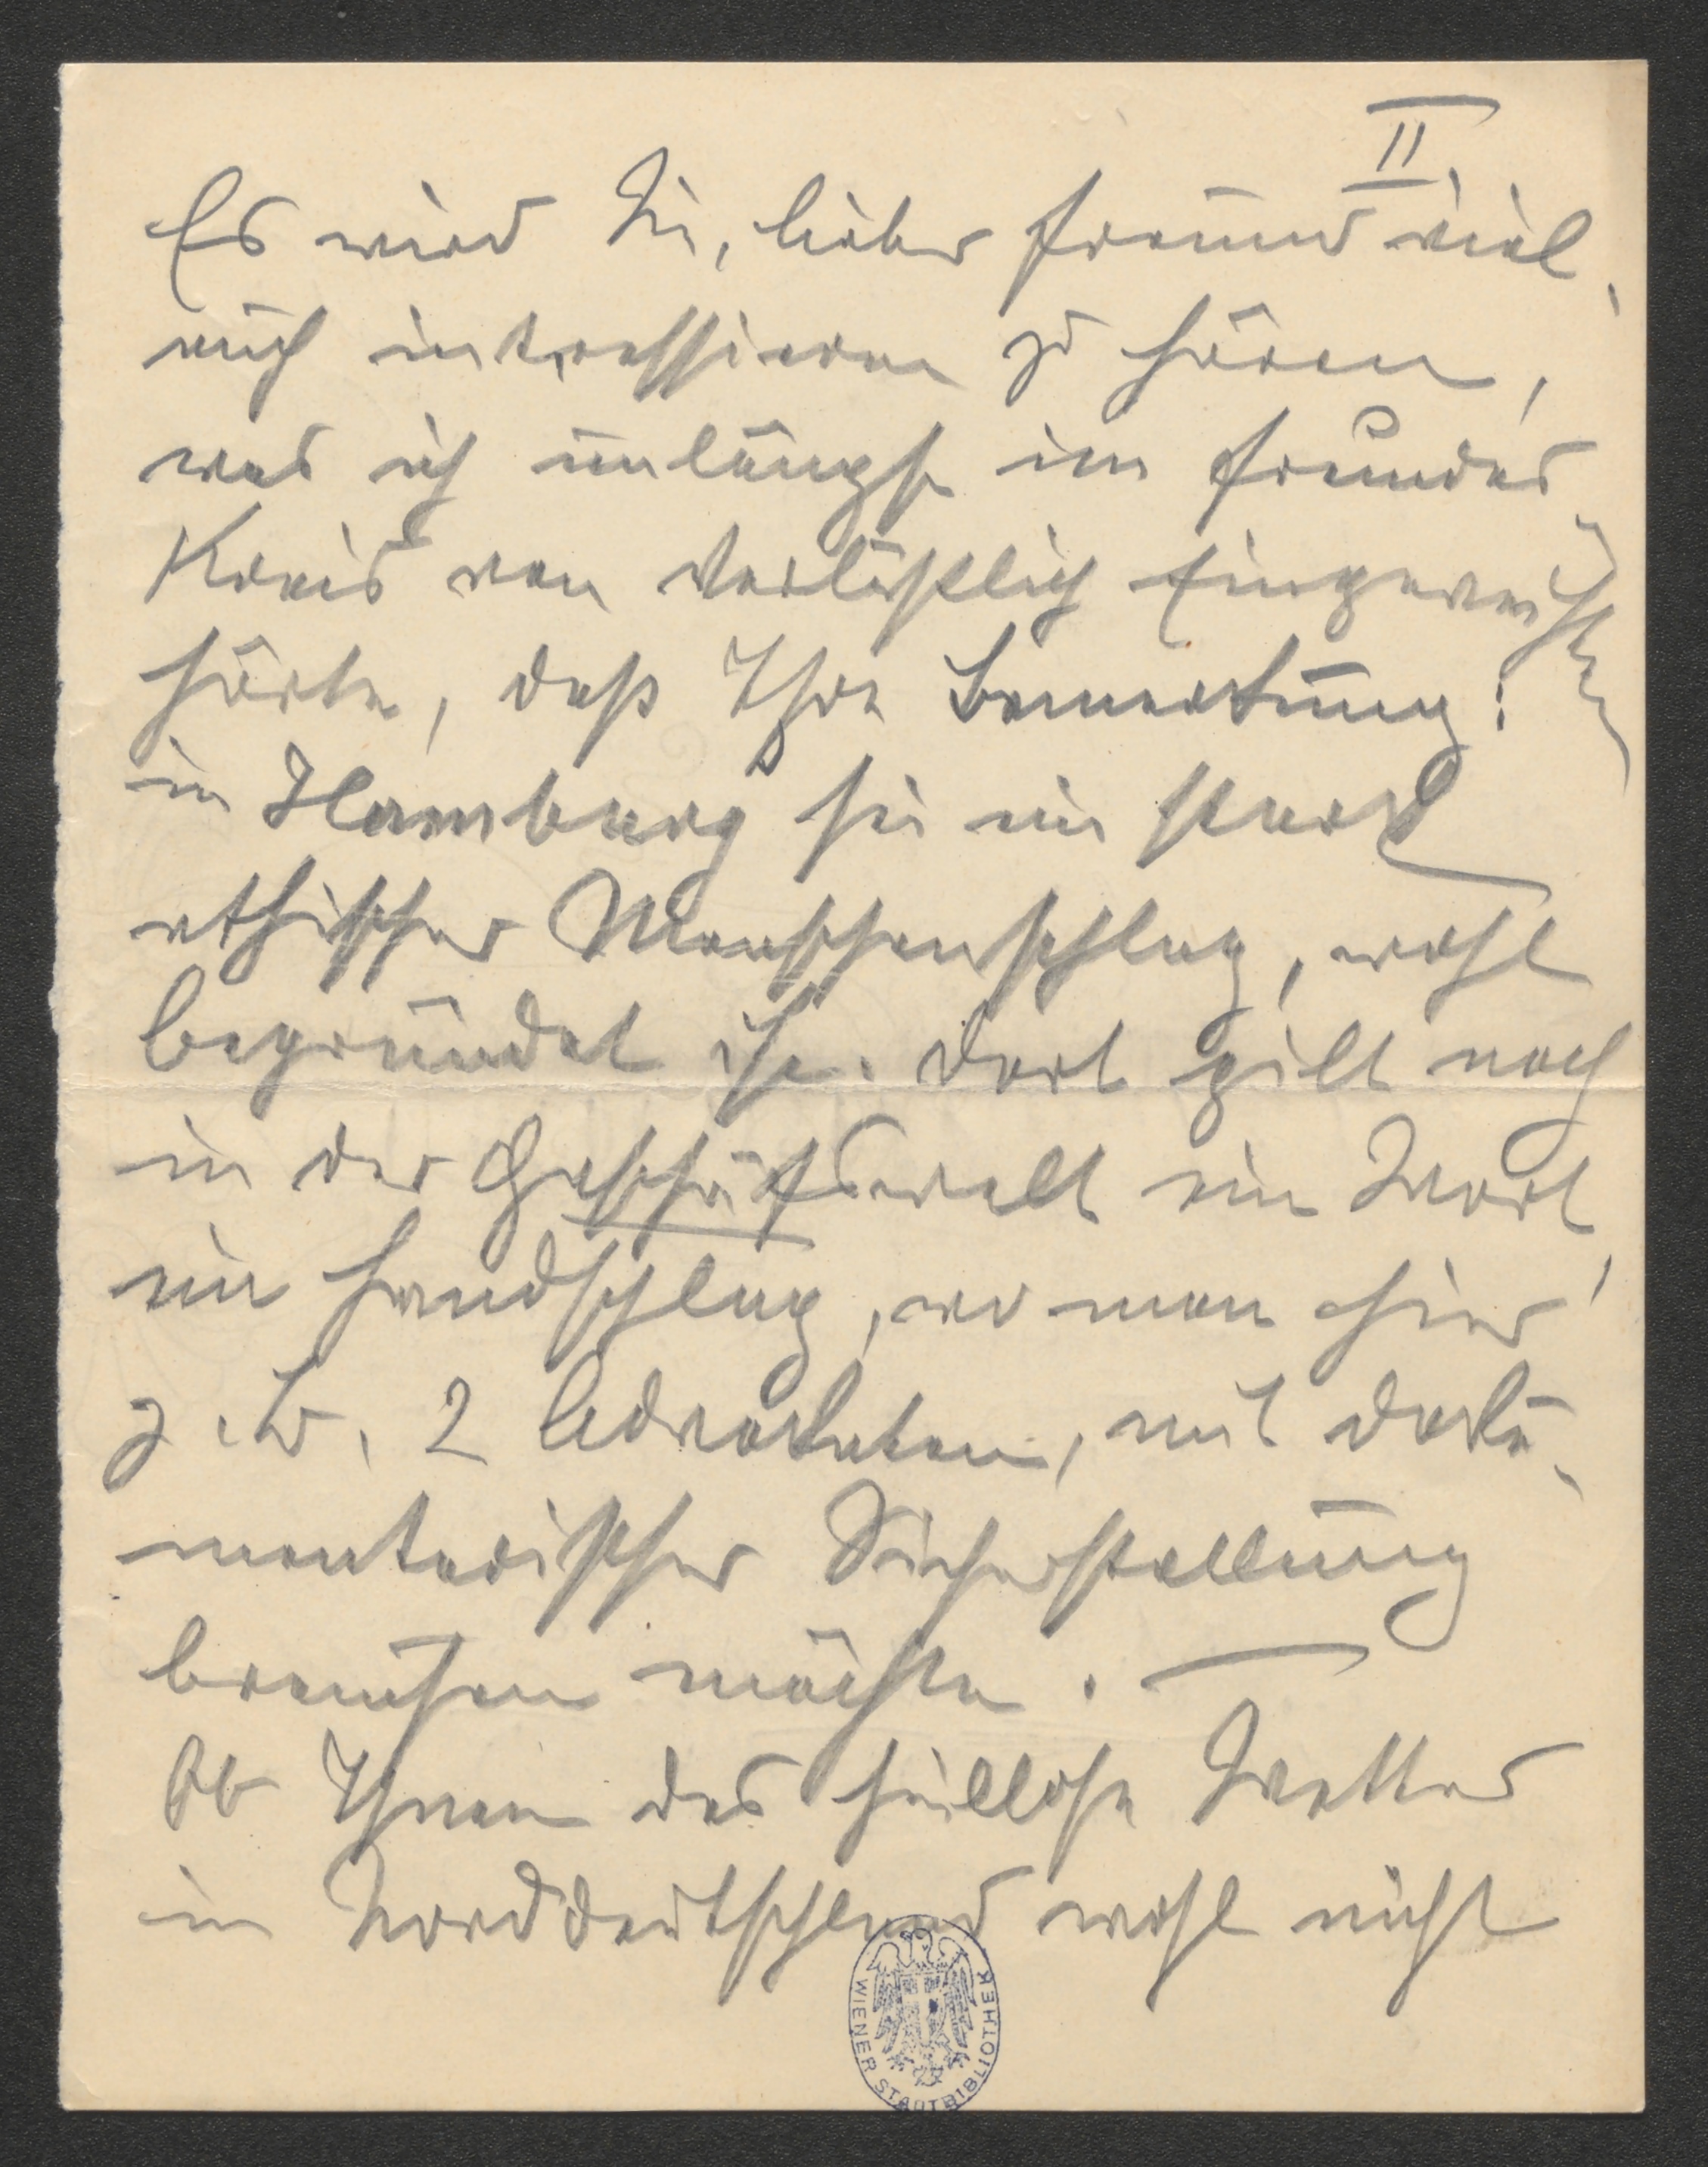 II
Es wird Sie, lieber Freund viel¬
leicht interessieren zu hören,
was ich unlängst im Freundes
Kreis von verläßlich Eingeweihten
hörte, daß Ihre Bemerkung:
in Hamburg sei ein stark
ethischer Menschenschlag, wohl
begründet ist. Dort gilt noch
in der Geschäftswelt ein Wort,
ein Handschlag, wo man hier
z. B. 2 Advokaten, mit doku¬
mentarischer Sicherstellung
brauchen möchte. —
Ob Ihnen das heillose Wetter
in Norddeutschland wohl nicht
WIENER STADTBIBLIOTHEK